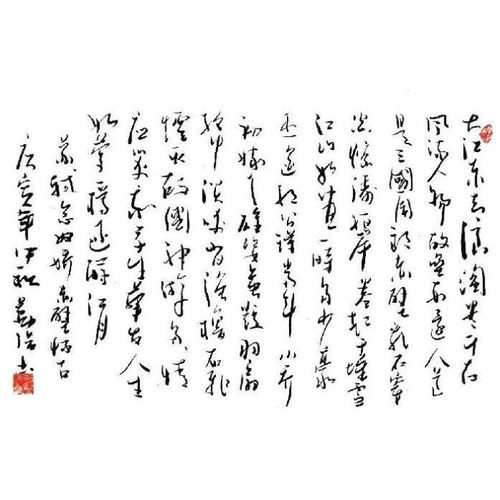 大江东去浪淘尽千古
风流人物故垒西边人道
是三國周郎赤壁乱石穿
空惊涛拍岸卷起千堆雪
江山如画一时多少豪
杰遥想公瑾当年小乔
初嫁了雄姿英發羽扇
纶巾谈笑间强橹灰飛
煙灭故國神游多情
应笑我早生华发人生
如夢一樽还酹江月
苏轼念奴娇赤壁怀古
庚寅年仲秋 书